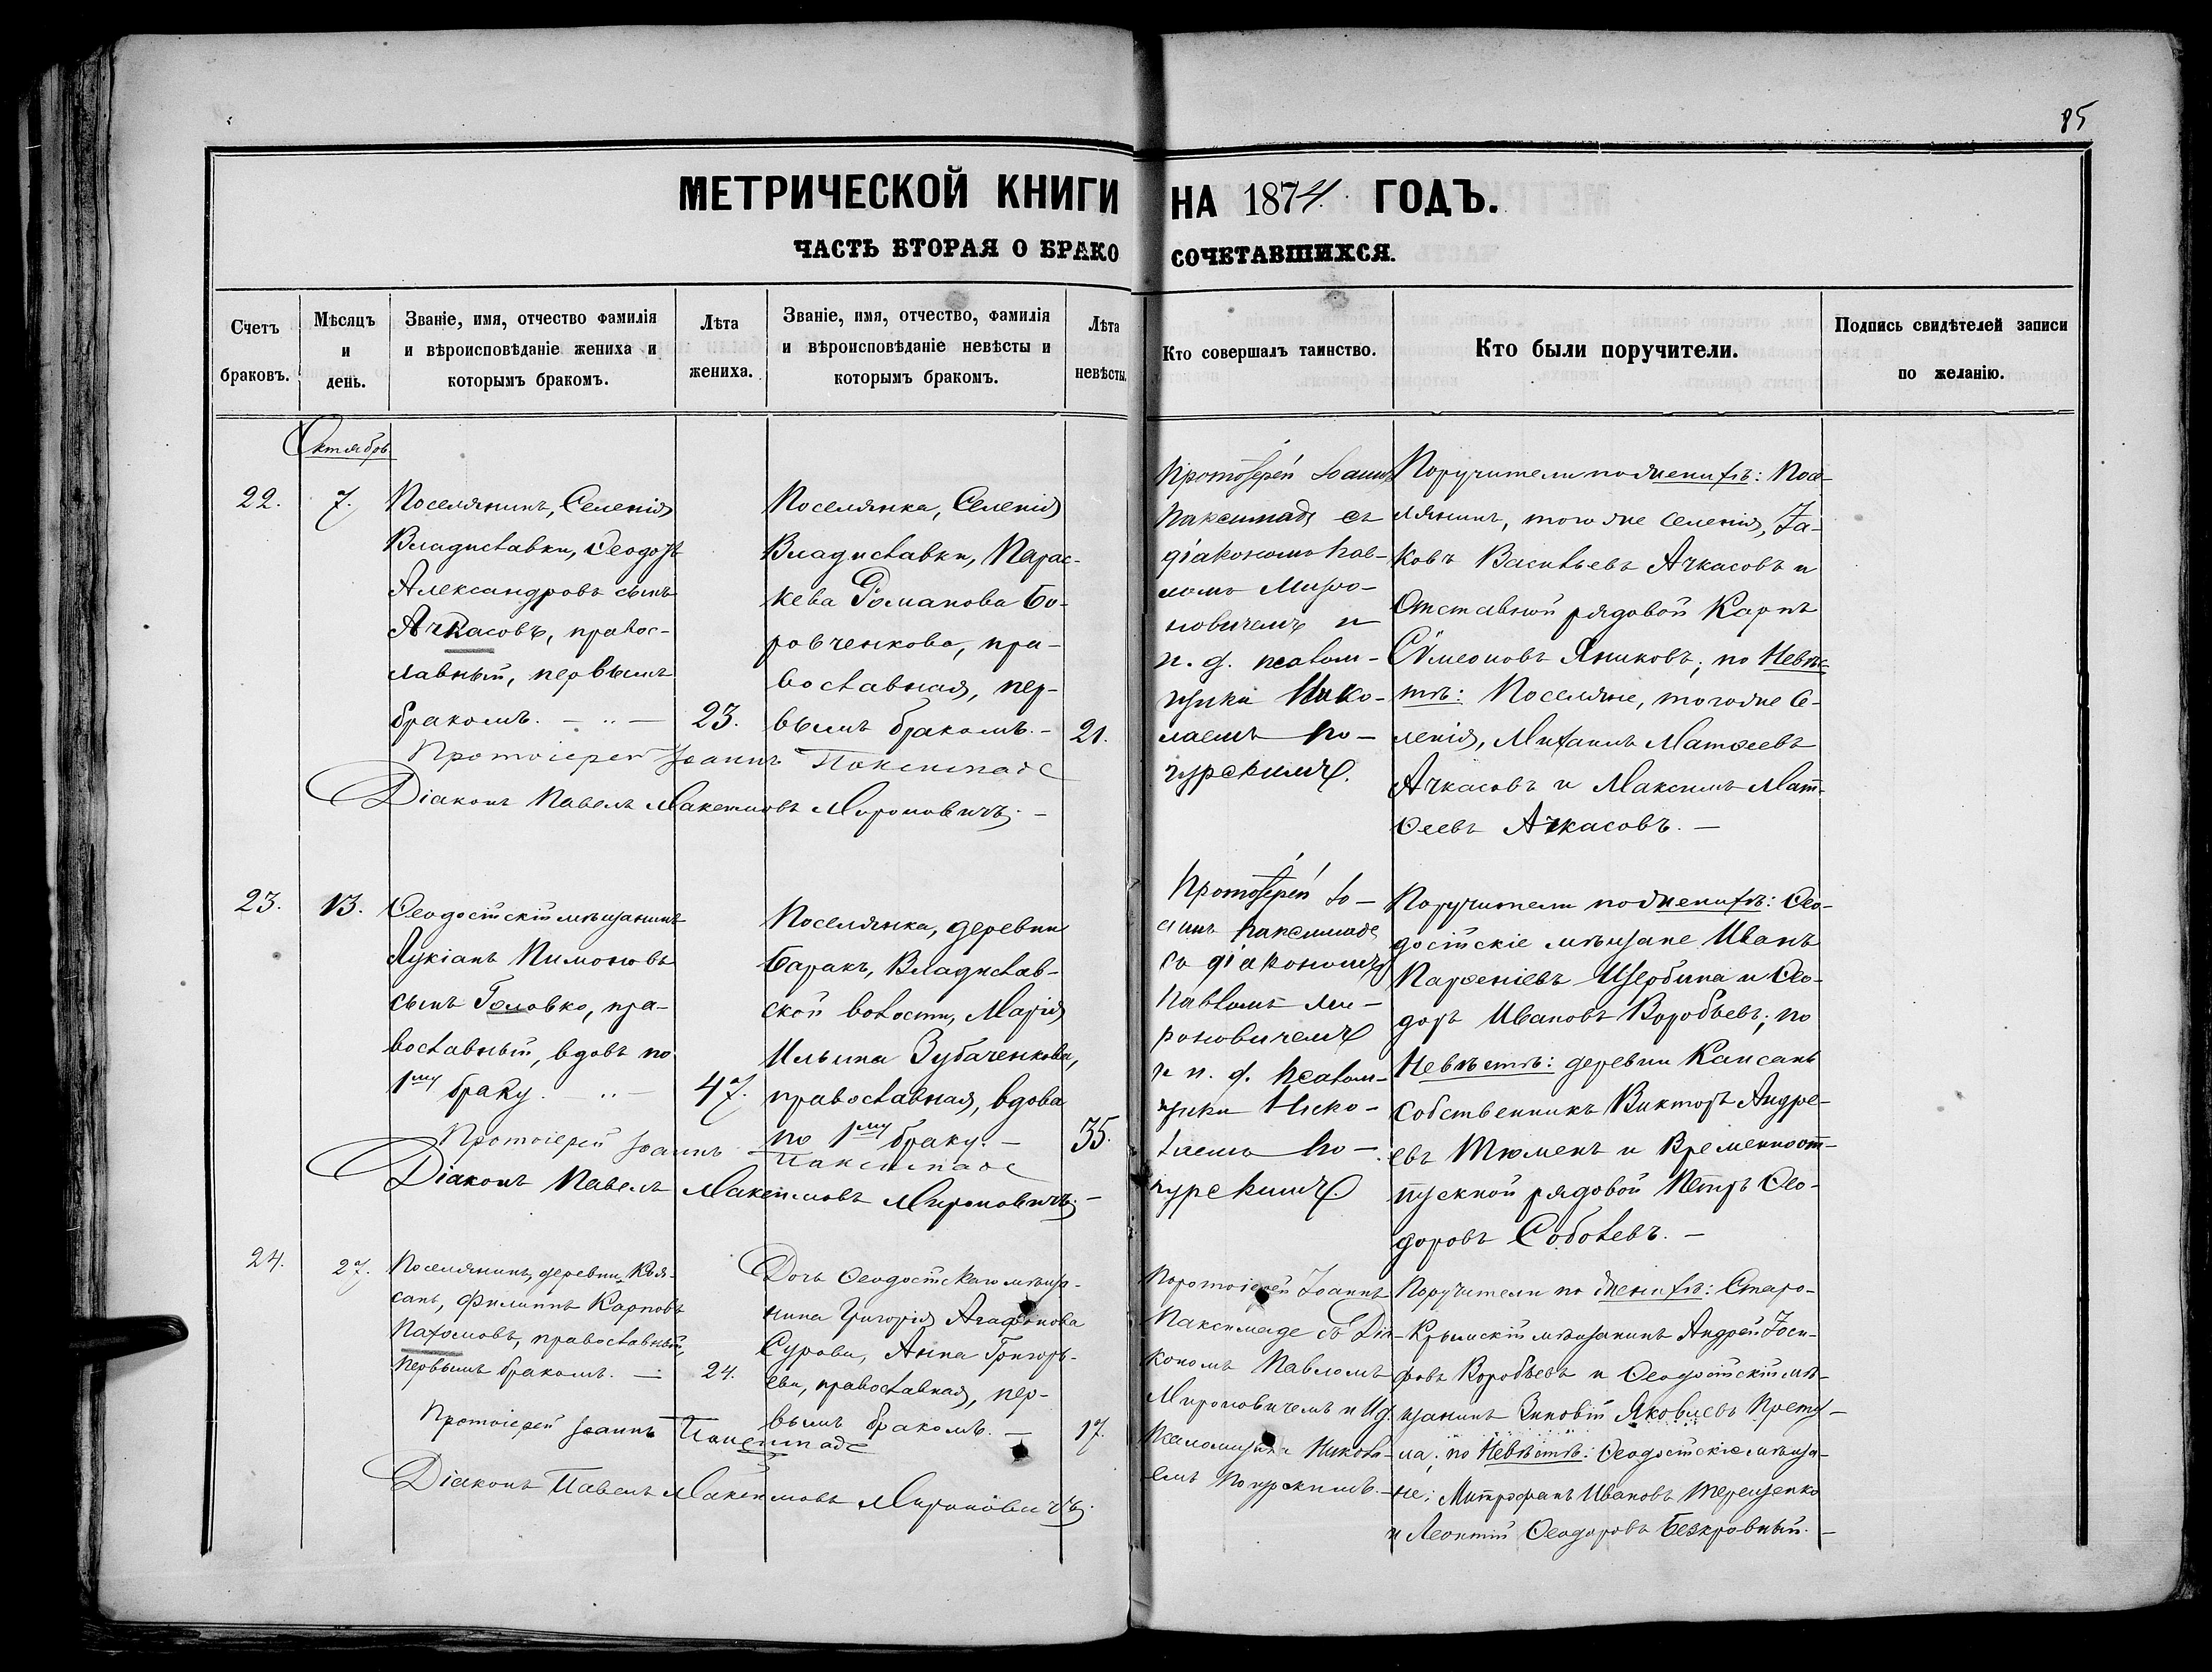 85
МЕТРИЧЕСКОЙ КНИГИ НА 1874 ГОДЪ.
ЧАСТЬ ВТОРАЯ О БРАКОСОЧЕТАВШИХСЯ.
Счетъ браковъ.
Мѣсяцъ и день.
Званіе, имя, отчество фамилія
и вѣроисповѣданіе жениха и
которымъ бракомъ.
Лѣта жениха.
Званіе, имя, отчество, фамилія
и вѣроисповѣданіе невѣсты и
которымъ бракомъ.
Лѣта невѣсты.
Кто совершалъ таинство.
Кто были поручители.
Подпись свидѣтелей записи
по желанію.
Октябрь
22.
7.
Поселянинъ, Селенія
Владиславки, Ѳеодоръ
Александровъ сынъ
Ачкасовъ, правос-
лавный, первымъ
бракомъ. —
23.
Поселянка, Селенія
Владиславки, Парас-
кева Романова Бо-
ровченкова, пра-
вославная, пер-
вымъ бракомъ. —
21.
Протоіерей Іоаннъ
Паксимаде съ
діакономъ Пав-
ломъ Миро-
новичемъ и
и. д. псалом-
щика Нико-
лаемъ По-
Поручители по женихѣ: Посе-
лянинъ, того же селенія, Іа-
ковъ Васильевъ Ачкасовъ и
Отставной рядовой Карпъ
Сѵмеоновъ Яниковъ; по Невѣс-
тѣ: Поселяне, того же се-
ленія, Михаилъ Матѳеевъ
Ачкасовъ и Максимъ Мат-
ѳеевъ Ачкасовъ. —
Протоіерей Іоаннъ Паксимаде
Діаконъ Павелъ Максимовъ Мироновичъ. —
23.
13.
Ѳеодосійскій мѣщанинъ
Лукіанъ Пимоновъ
сынъ Головко, пра-
вославный, вдовъ по
1му браку. —
47.
Поселянка, деревни
Баракъ, Владислав-
ской волости, Марія
Ильина Зубаченкова,
православная, вдова
по 1му браку. —
35.
Протоіерей Іо-
аннъ Паксимаде
съ діакономъ
Павломъ Ми-
роновичемъ
и и. д. псалом-
щика Нико-
лаемъ По-
Поручители по женихѣ: Ѳео-
досійскіе мѣщане Иванъ
Парѳеніевъ Щербина и Ѳео-
доръ Ивановъ Воробьевъ; по
Невѣстѣ: деревни Кансанъ
собственникъ Викторъ Андре-
евъ Тюменъ и Временноот-
пускной рядовой Петръ Ѳео-
доровъ Соболевъ. —
Протоіерей Іоаннъ Паксимаде
Діаконъ Павелъ Максимовъ Мироновичъ. —
24.
27.
Поселянинъ, деревни
Филиппъ Карповъ
Пахомовъ, православный,
первымъ бракомъ. —
24.
Дочь Ѳеодосійскаго мѣща-
нина Григорія Агафонова
Сурова, Анна Григорь-
ева, православная, пер-
вымъ бракомъ. —
17.
Протоіерей Іоаннъ
Паксимаде съ Діа-
кономъ Павломъ
Мироновичемъ и И. д.
Псаломщика Никола-
емъ
Поручители по женихѣ: Старо-
Крымскій мѣщанинъ Андрей Іоси-
фовъ Воробьевъ и Ѳеодосійскій мѣ-
щанинъ Зиновій Яковлевъ
по Невѣстѣ: Ѳеодосійскіе мѣща-
не: Митрофанъ Ивановъ Терещенко
и Леонтій Ѳеодоровъ Безкровный. —
Протоіерей Іоаннъ Паксимаде
Діаконъ Павелъ Максимовъ Мироновичъ.